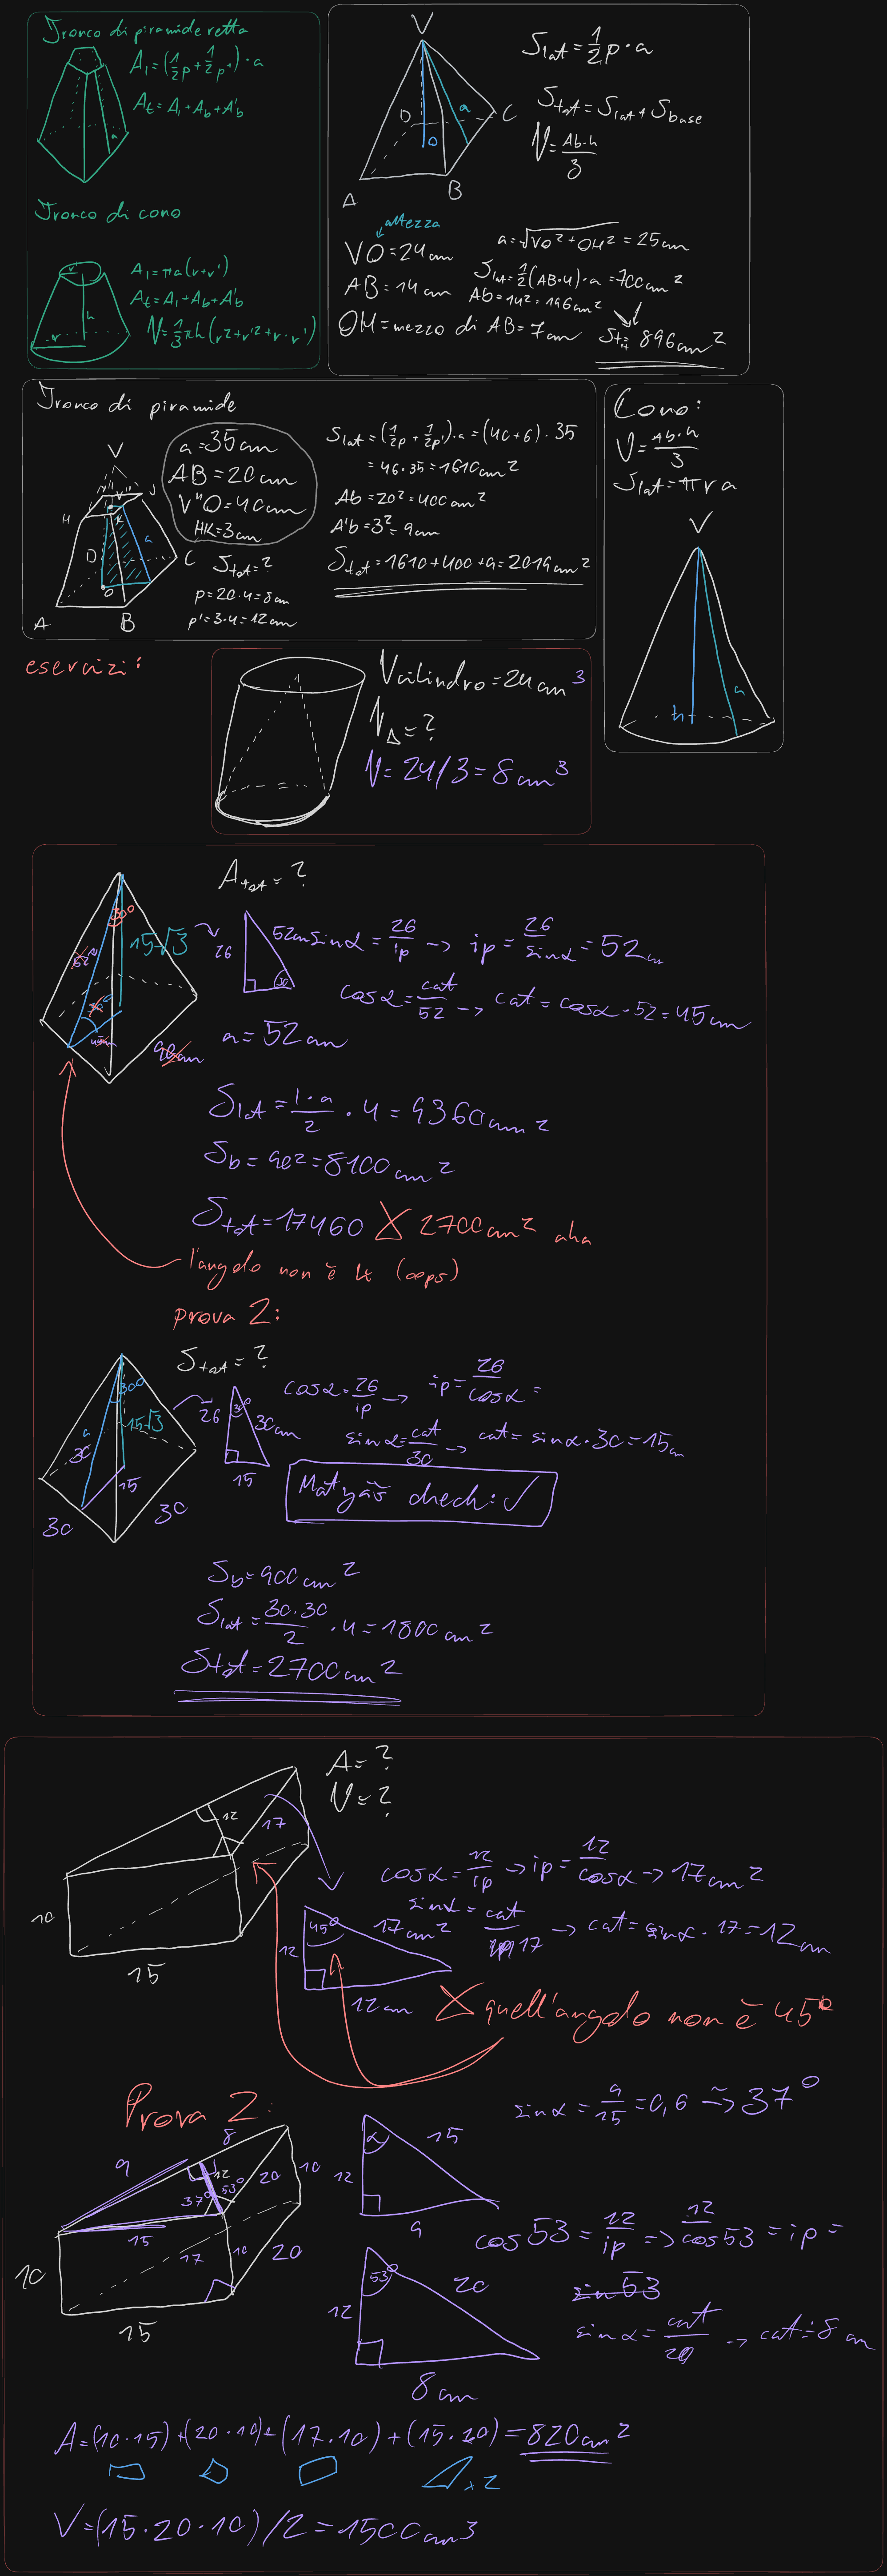 Tronco di piramide retta
A₁=(½p+½p')·a
At=A₁+Ab+A'b
a
Tronco di cono
r'
h
r
A₁=πa(r+r')
At=A₁+Ab+A'b
V=⅓πh(r²+r'²+r·r')
V
D
C
A
B
O
a
Slat=½p·a
Stot=Slat+Sbase
V=Ab·h/3
altezza
VO=24cm
AB=14cm
OH=mezzo di AB=7cm
a=√VO²+OH²=25cm
Slat=½(AB·4)·a=700cm²
Ab=14²=196cm²
Stot=896cm²
Tronco di piramide
V
H
K
D
C
O
A
B
a
a=35cm
AB=20cm
V"O=40cm
HK=3cm
Stot=?
p=20·4=8cm
p'=3·4=12cm
Slat=(½p+½p')·a=(40+6)·35
=46·35=1610cm²
Ab=20²=400cm²
A'b=3²=9cm
Stot=1610+400+9=2019cm²
Cono:
V=Ab·h/3
Slat=πra
V
h
a
esercizi:
Vcilindro=24cm³
V△=?
V=24/3=8cm³
Atot=?
30°
15√3
26
52cm
30
sinα=26/ip → ip=26/sinα=52cm
cosα=cat/52 → cat=cosα·52=45cm
a=52cm
Slat=l·a/2·4=9360cm²
Sb=90²=8100cm²
Stot=17460 X 2700cm² aha
l'angolo non è lì (oops)
prova 2:
Stot=?
30°
15√3
a
30
15
30
30
26
30°
30cm
15
cosα=26/ip → ip=26/cosα=
sinα=cat/30 → cat=sinα·30=15cm
Matyáš check: ✓
Sb=900cm²
Slat=30·30/2·4=1800cm²
Stot=2700cm²
A=?
V=?
12
17
10
15
cosα=12/ip → ip=12/cosα → 17cm²
sinα=cat/17 → cat=sinα·17=12cm
45°
17cm²
12
12cm
X quell'angolo non è 45°
Prova 2:
sinα=9/15=0,6 → 37°
8
9
12
20
10
37°
53°
15
17
10
20
10
15
α
15
12
9
cos53=12/ip => 12/cos53=ip=
53°
20
12
8cm
sin53
sinα=cat/20 → cat=8cm
A=(10·15)+(20·10)+(17·10)+(15·20)=820cm²
x2
V=(15·20·10)/2=1500cm³